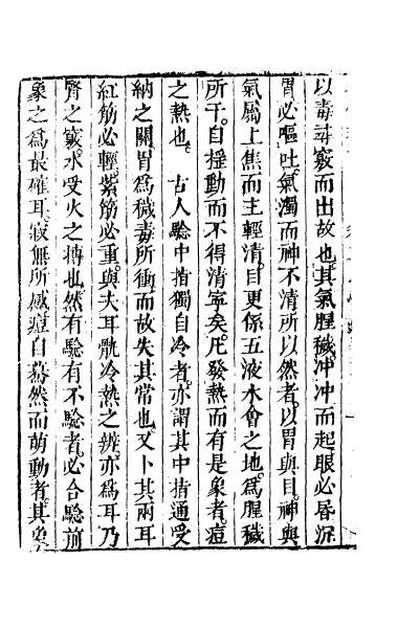 以毒幷竅而出故也其氣腥穢冲冲而起眼必昏沉
胃必嘔吐氣濁而神不清所以然者以胃與目神與
氣屬上焦而主輕清目更係五液木會之地爲腥穢
所干自搖動而不得清寧矣凡發熱而有是象者痘
之熱也 古人驗中指獨自冷者亦謂其中指通受
納之關胃爲穢毒所衝而故失其常也又卜其兩耳
紅筋必輕紫筋必重與夫耳骫冷熱之辨亦爲耳乃
腎之竅水受火之摶也然有驗有不驗者必合驗前
象之爲最確耳寂無所感痘自驀然而萌動者其象